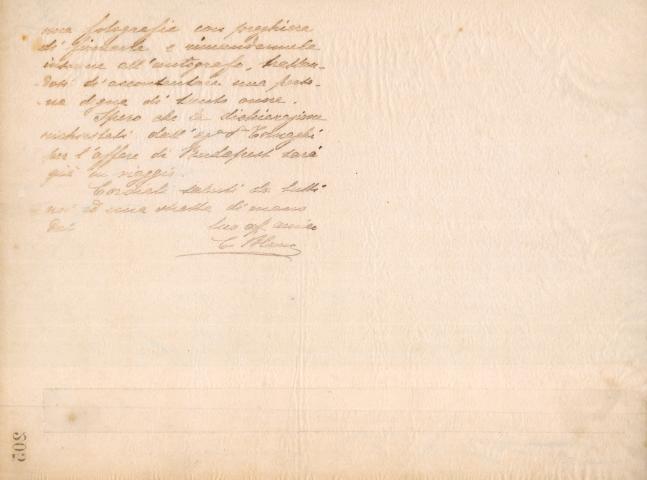 fotografia con preghiera
di firmarla e rimandarmela
insieme all'autografo, trattan-
dosi di accontentare una perso-
na degna di tanto onore.
Spero che la dichiarazione
dall'
per l'affare di Budapest sarà
già in viaggio.
Cordiali saluti da tutti
noi ed una stretta di mano
dal Suo aff. amico
C. Blanc
205